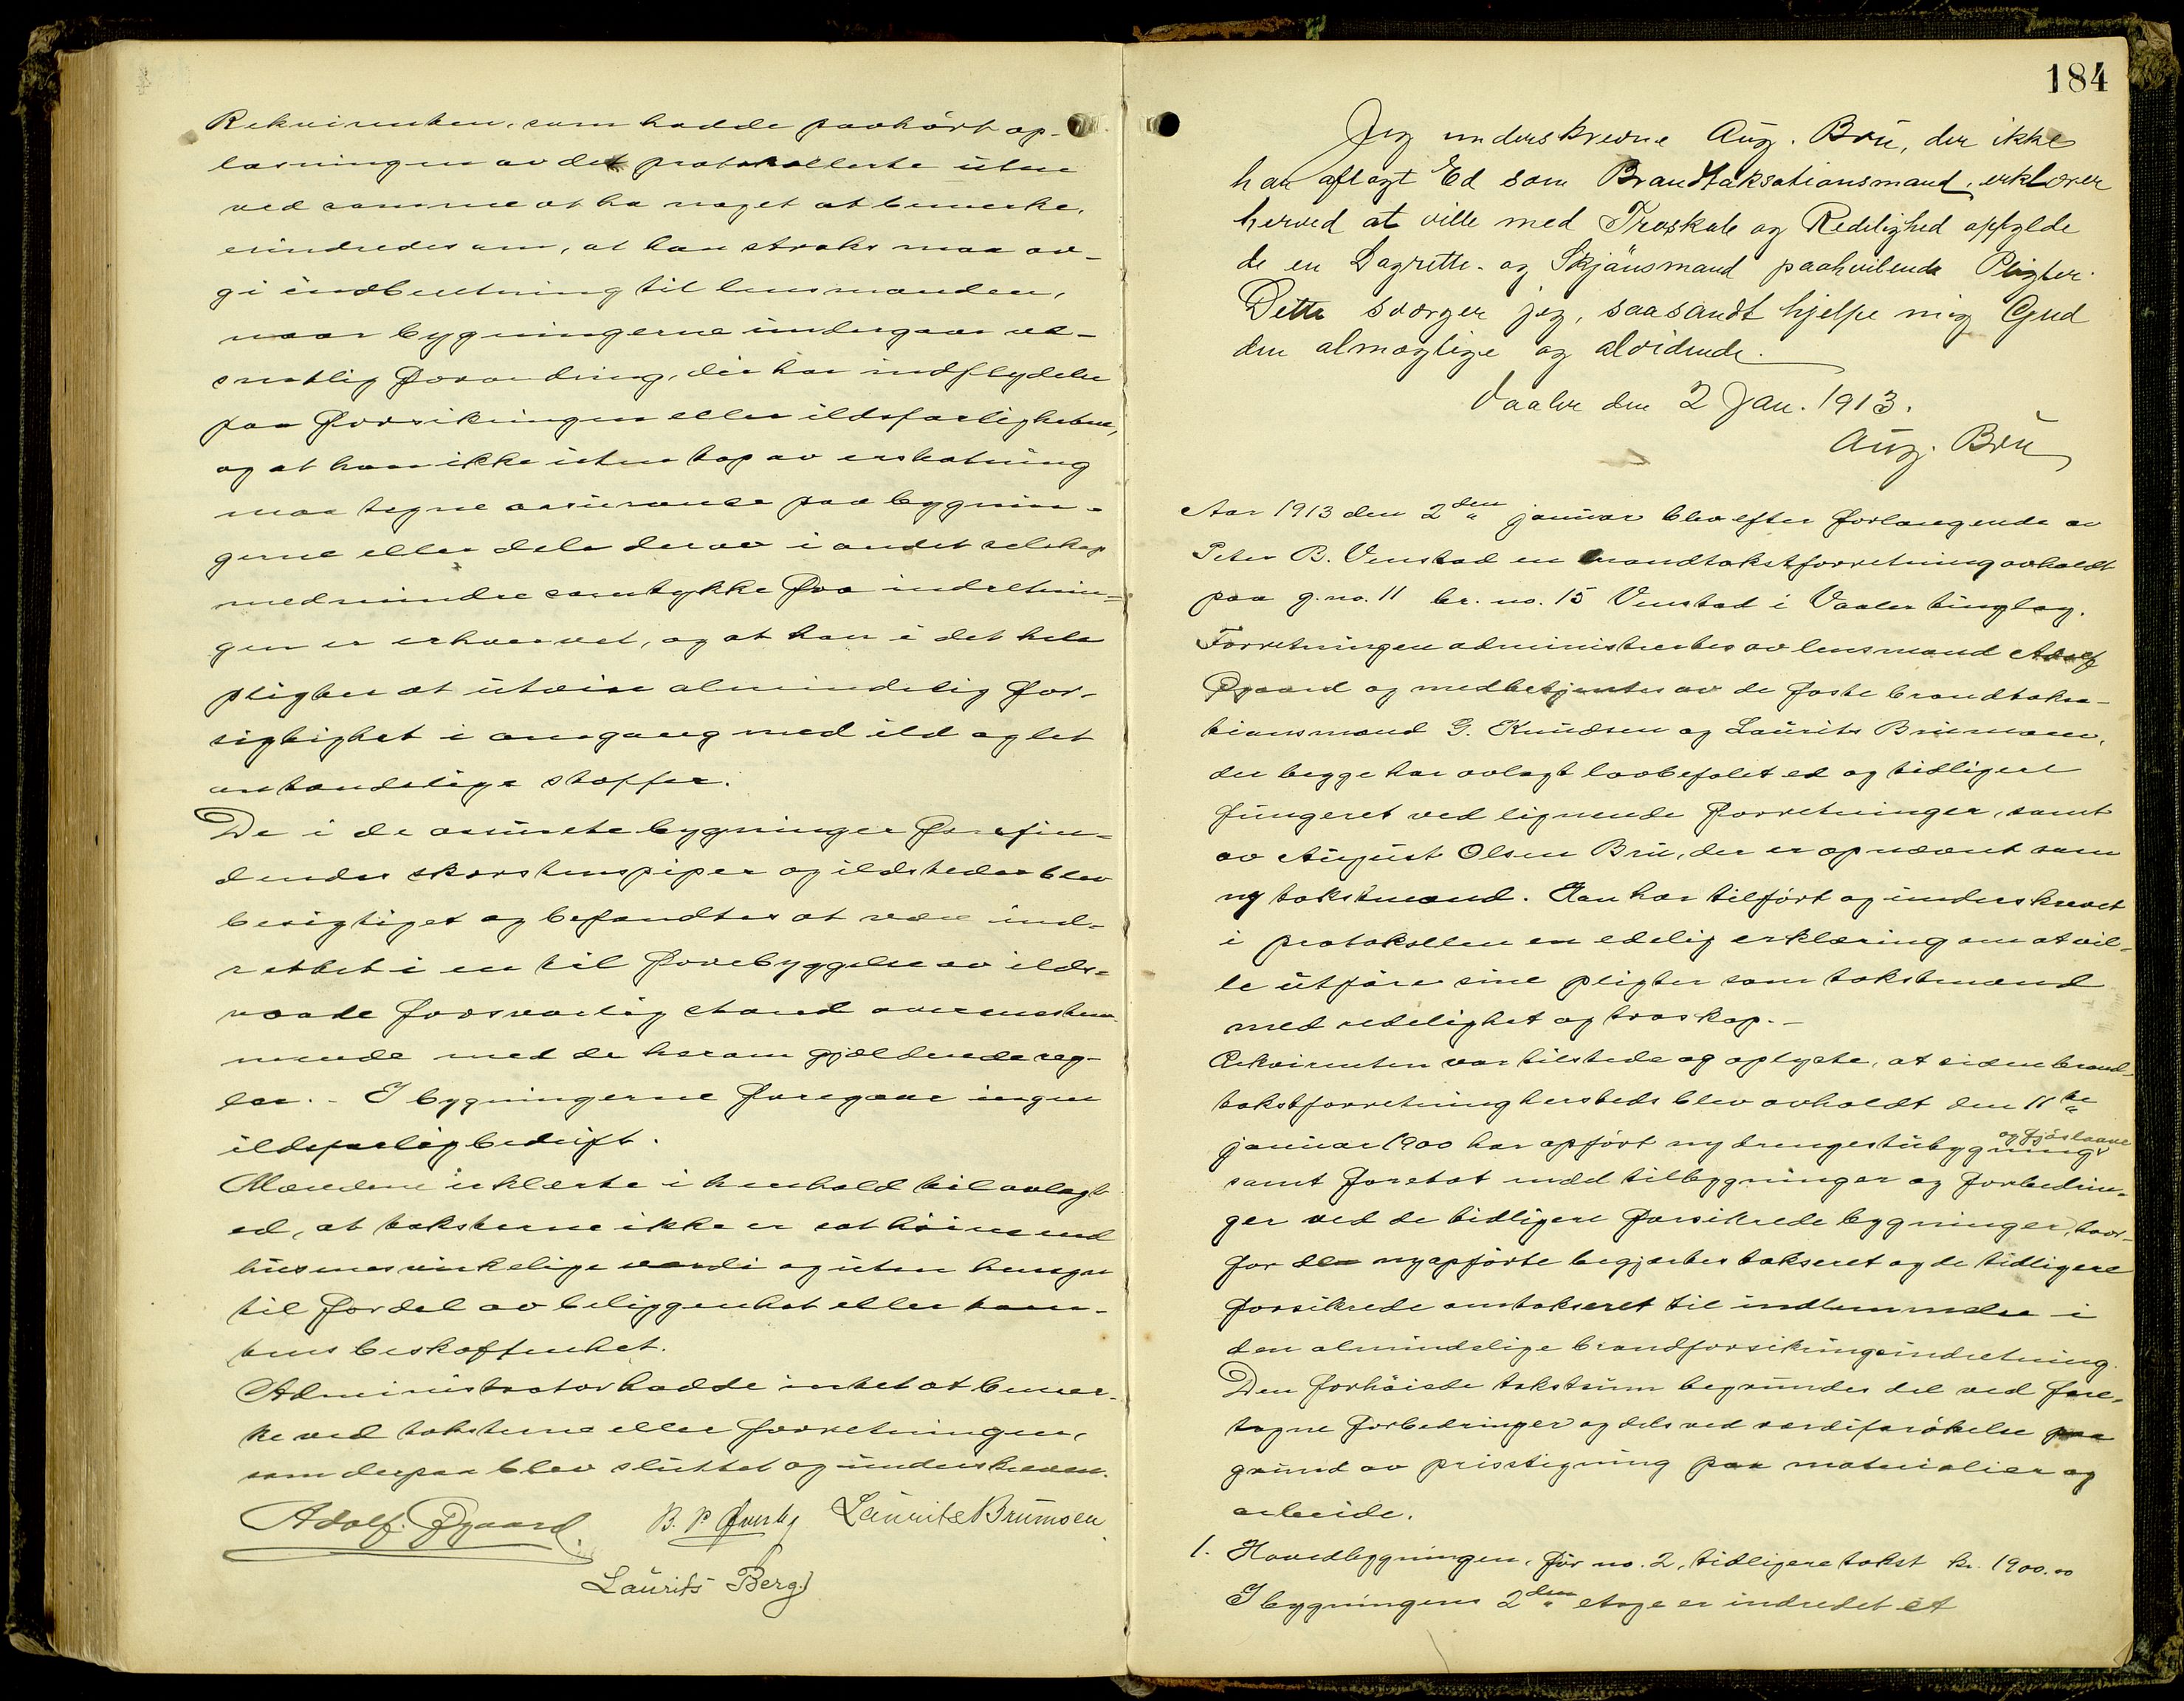 Rekvirenten, som hadde paahørt op-
læsningen av det protokollerte uten
ved samme at ha noget at bemerke,
erindredes om, at han straks maa av-
gi indberetning til lensmanden,
naar bygningerne undergaar væ-
sentlig forandring, der har indflydelse
paa forsikringen eller ildsfarligheten,
og at han ikke uten tap av erstatning
maa tegne assurance paa bygnin-
gerne eller dele derav i andet selskap
medmindre samtykke fra indretnin-
gen er erhvervet, og at han i det hele
pligter at utvise almindelig for-
sigtighet i omgang med ild og let
antændelige stoffer.
De i de assurerte bygninger forefin-
dendes skorstenspiper og ildsteder blev
besigtiget og befandtes at være ind-
rettet i en til forebyggelse av ilds-
vaade forsvarlig stand overenstem-
mende med de herom gjældende reg-
ler. - I bygningerne foregaar ingen
ildsfarlig bedrift.
Mændene erklærte i henhold til avlagt
ed, at taksterne ikke er sat høiere end
husenes virkelige værdi og uten hensyn
til fordel av beliggenhet eller tom-
tens beskaffenhet.
Administrator hadde intet at bemer-
ke ved taksterne eller forretningen,
som derpaa blev sluttet og underskreven.
Adolf Øgaard. B. P. Øverby Laurits Brumoen
Laurits Berg
184
Jeg underskrevne Aug. Bru, der ikke
har aflagt Ed som Brandtaksationsmand, erklærer
herved at ville med Troskab og Redelighed opfylde
de en Lagrette- og Skjönsmand paahvilende Pligter.
Dette sværger jeg, saasandt hjelpe mig Gud
den almægtige og alvidende.
Vaaler den 2 Jan. 1913.
Aug. Bru
Aar 1913 den 2den januar blev efter forlangende av
Peter B. Venstad en brandtakstforretning avholdt
paa g.no. 11 br. no. 15 Venstad i Vaaler tinglag.
Forretningen administrertes av lensmand Adolf
Øgaard og medbetjentes av de faste brandtaksa-
tionsmænd G. Knudsen og Laurits Brumoen,
der begge har avlagt lovbefalet ed og tidligere
fungeret ved lignende forretninger, samt
av August Olsen Bru, der er opnævnt som
ny takstmand. Han har tilført og underskrevet
i protokollen en edelig erklæring om at vil-
le utføre sine pligter som takstmand
med redelighet og troskap. -
Rekvirenten var tilstede og oplyste, at siden brand-
takstforretning hersteds blev avholdt den 11te
januar 1900 har opført ny drengestubygning og fjøslaave
samt foretat endel tilbygninger og forbedrin-
ger ved de tidligere forsikrede bygninger, hvor-
for den nyopførte begjærtes takseret og de tidligere
forsikrede omtakseret til indlemmelse i
den almindelige brandforsikringsindretning.
Den forhøiede takstsum begrundes del ved fore-
tagne forbedringer og dels ved værdiforøkelse paa
grund av prisstigning paa materialier og
arbeide.
1. Hovedbygningen, før no. 2, tidligere takst kr. 1900.00
I bygningens 2den etage er indredet et